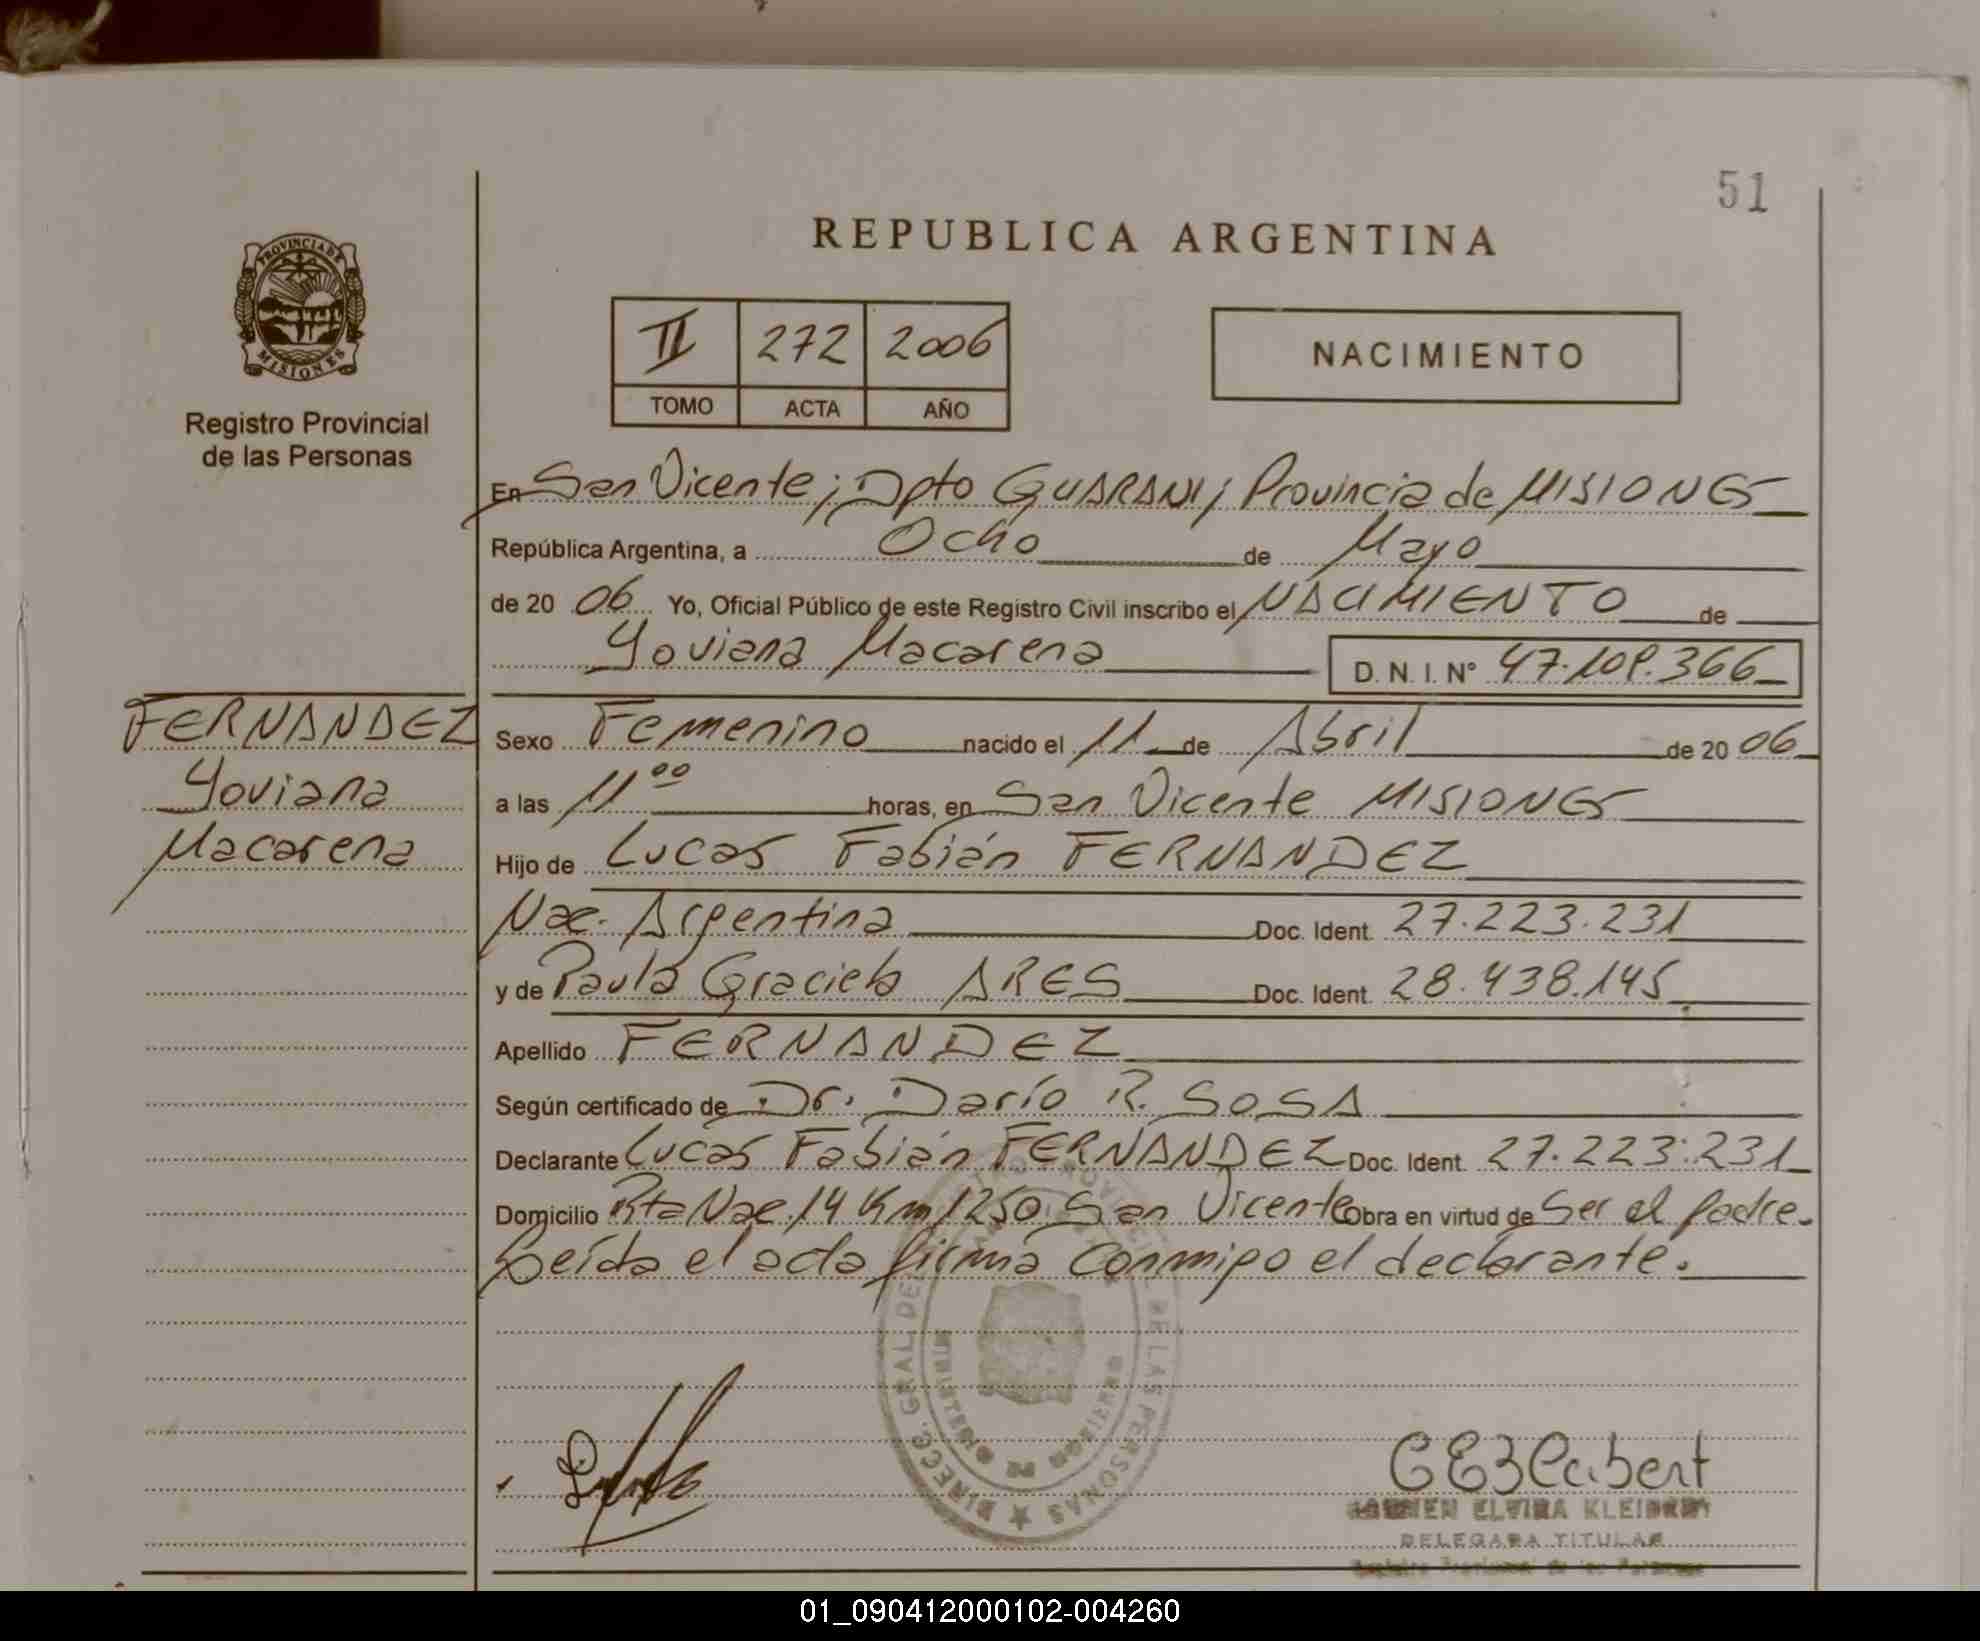 51
REPUBLICA ARGENTINA
PROVINCIA DE
MISIONES
Registro Provincial
de las Personas
II 272 2006
TOMO ACTA AÑO
NACIMIENTO
En San Vicente; Dpto GUARANI; Provincia de MISIONES
República Argentina, a Ocho de Mayo
de 20 06 Yo, Oficial Público de este Registro Civil inscribo el NACIMIENTO de
Yoviana Macarena D. N. I. Nº 47.109.366
FERNANDEZ
Yoviana
Macarena
Sexo Femenino nacido el 11 de Abril de 20 06
a las 11 00 horas, en San Vicente MISIONES
Hijo de Lucas Fabián FERNANDEZ
Nac. Argentina Doc. Ident. 27.223.231
y de Paula Graciela ARES Doc. Ident. 28.438.145
Apellido FERNANDEZ
Según certificado de Dr. Darío R. SOSA
Declarante Lucas Fabián FERNANDEZ Doc. Ident. 27.223.231
Domicilio Rta Nac. 14 Km 1250 San Vicente Obra en virtud de Ser el padre.
Leída el acta firma conmigo el declarante.
DIRECC. GRAL DEL REGISTRO PROVINCIAL DE LAS PERSONAS
MINISTERIO DE GOBIERNO
ELVIRA
DELEGADA TITULAR
Registro Provincial de las Personas
01_090412000102-004260